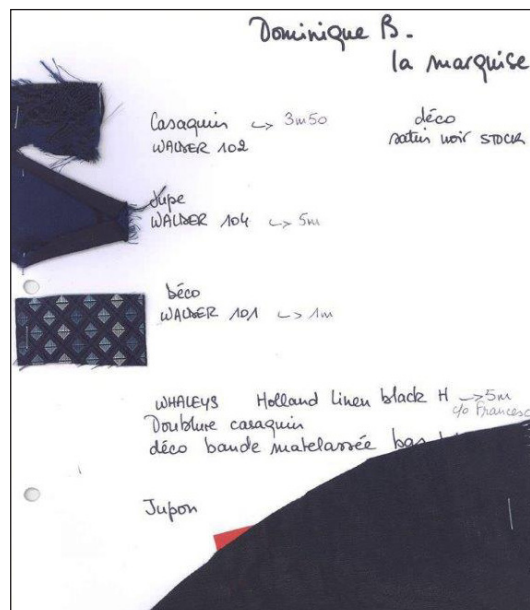 Dominique B.
la marquise
Casaquin ↪ 3m50
WALDER 102
déco
satin noir STOCK
Jupe
WALDER 104 ↪ 5m
déco
WALDER 101 ↪ 1m
WHALEYS Holland linen black H → 5m
c/o Francesc
Doublure casaquin
déco bande matelassée bas
Jupon